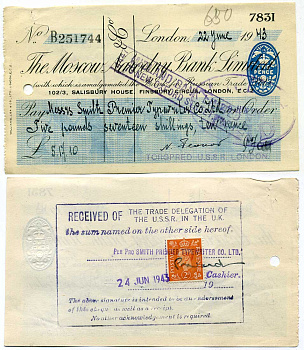 650
7831
No B251744
London, 22 June 1943
The Moscow Narodny Bank Limited
with which is amalgamated the Russian Trade
102/3, SALISBURY HOUSE FINSBURY CIRCUS, LONDON, E.C.
PENCE
Pay Messrs Smith Premier Typewriter Co. Ltd or Order
Five pounds seventeen shillings, ten pence
£ 5.17.10
TORGPRED U.S.S.R. LONDON.
RECEIVED OF THE TRADE DELEGATION OF
THE U.S.S.R. IN THE U.K.
the sum named on the other side hereof.
PER PRO SMITH PREMIER TYPEWRITER CO. LTD.
24 JUN 1943
Cashier.
19
The above signature is intended to be an endorsement
of this cheque as well as a receipt.
No other acknowledgement is required.